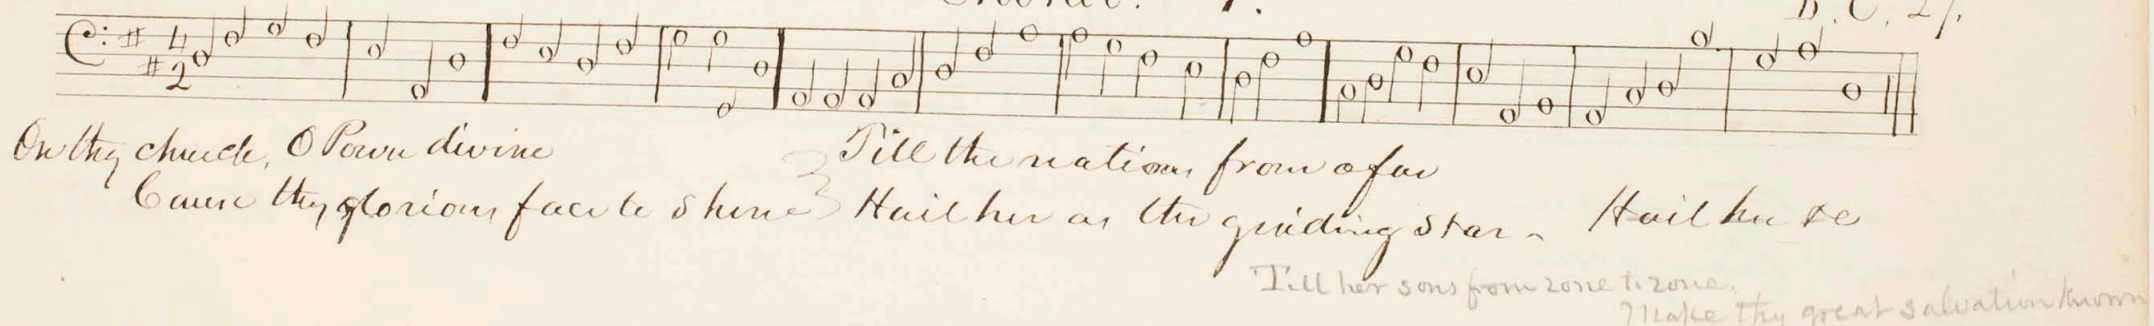 4
2
On thy church, O Power divine
Cause thy glorious face to shine
Till the nations from afar
Hail her as the guiding star - Hail her &c
Till her sons from zone to zone.
Make thy great salvation known